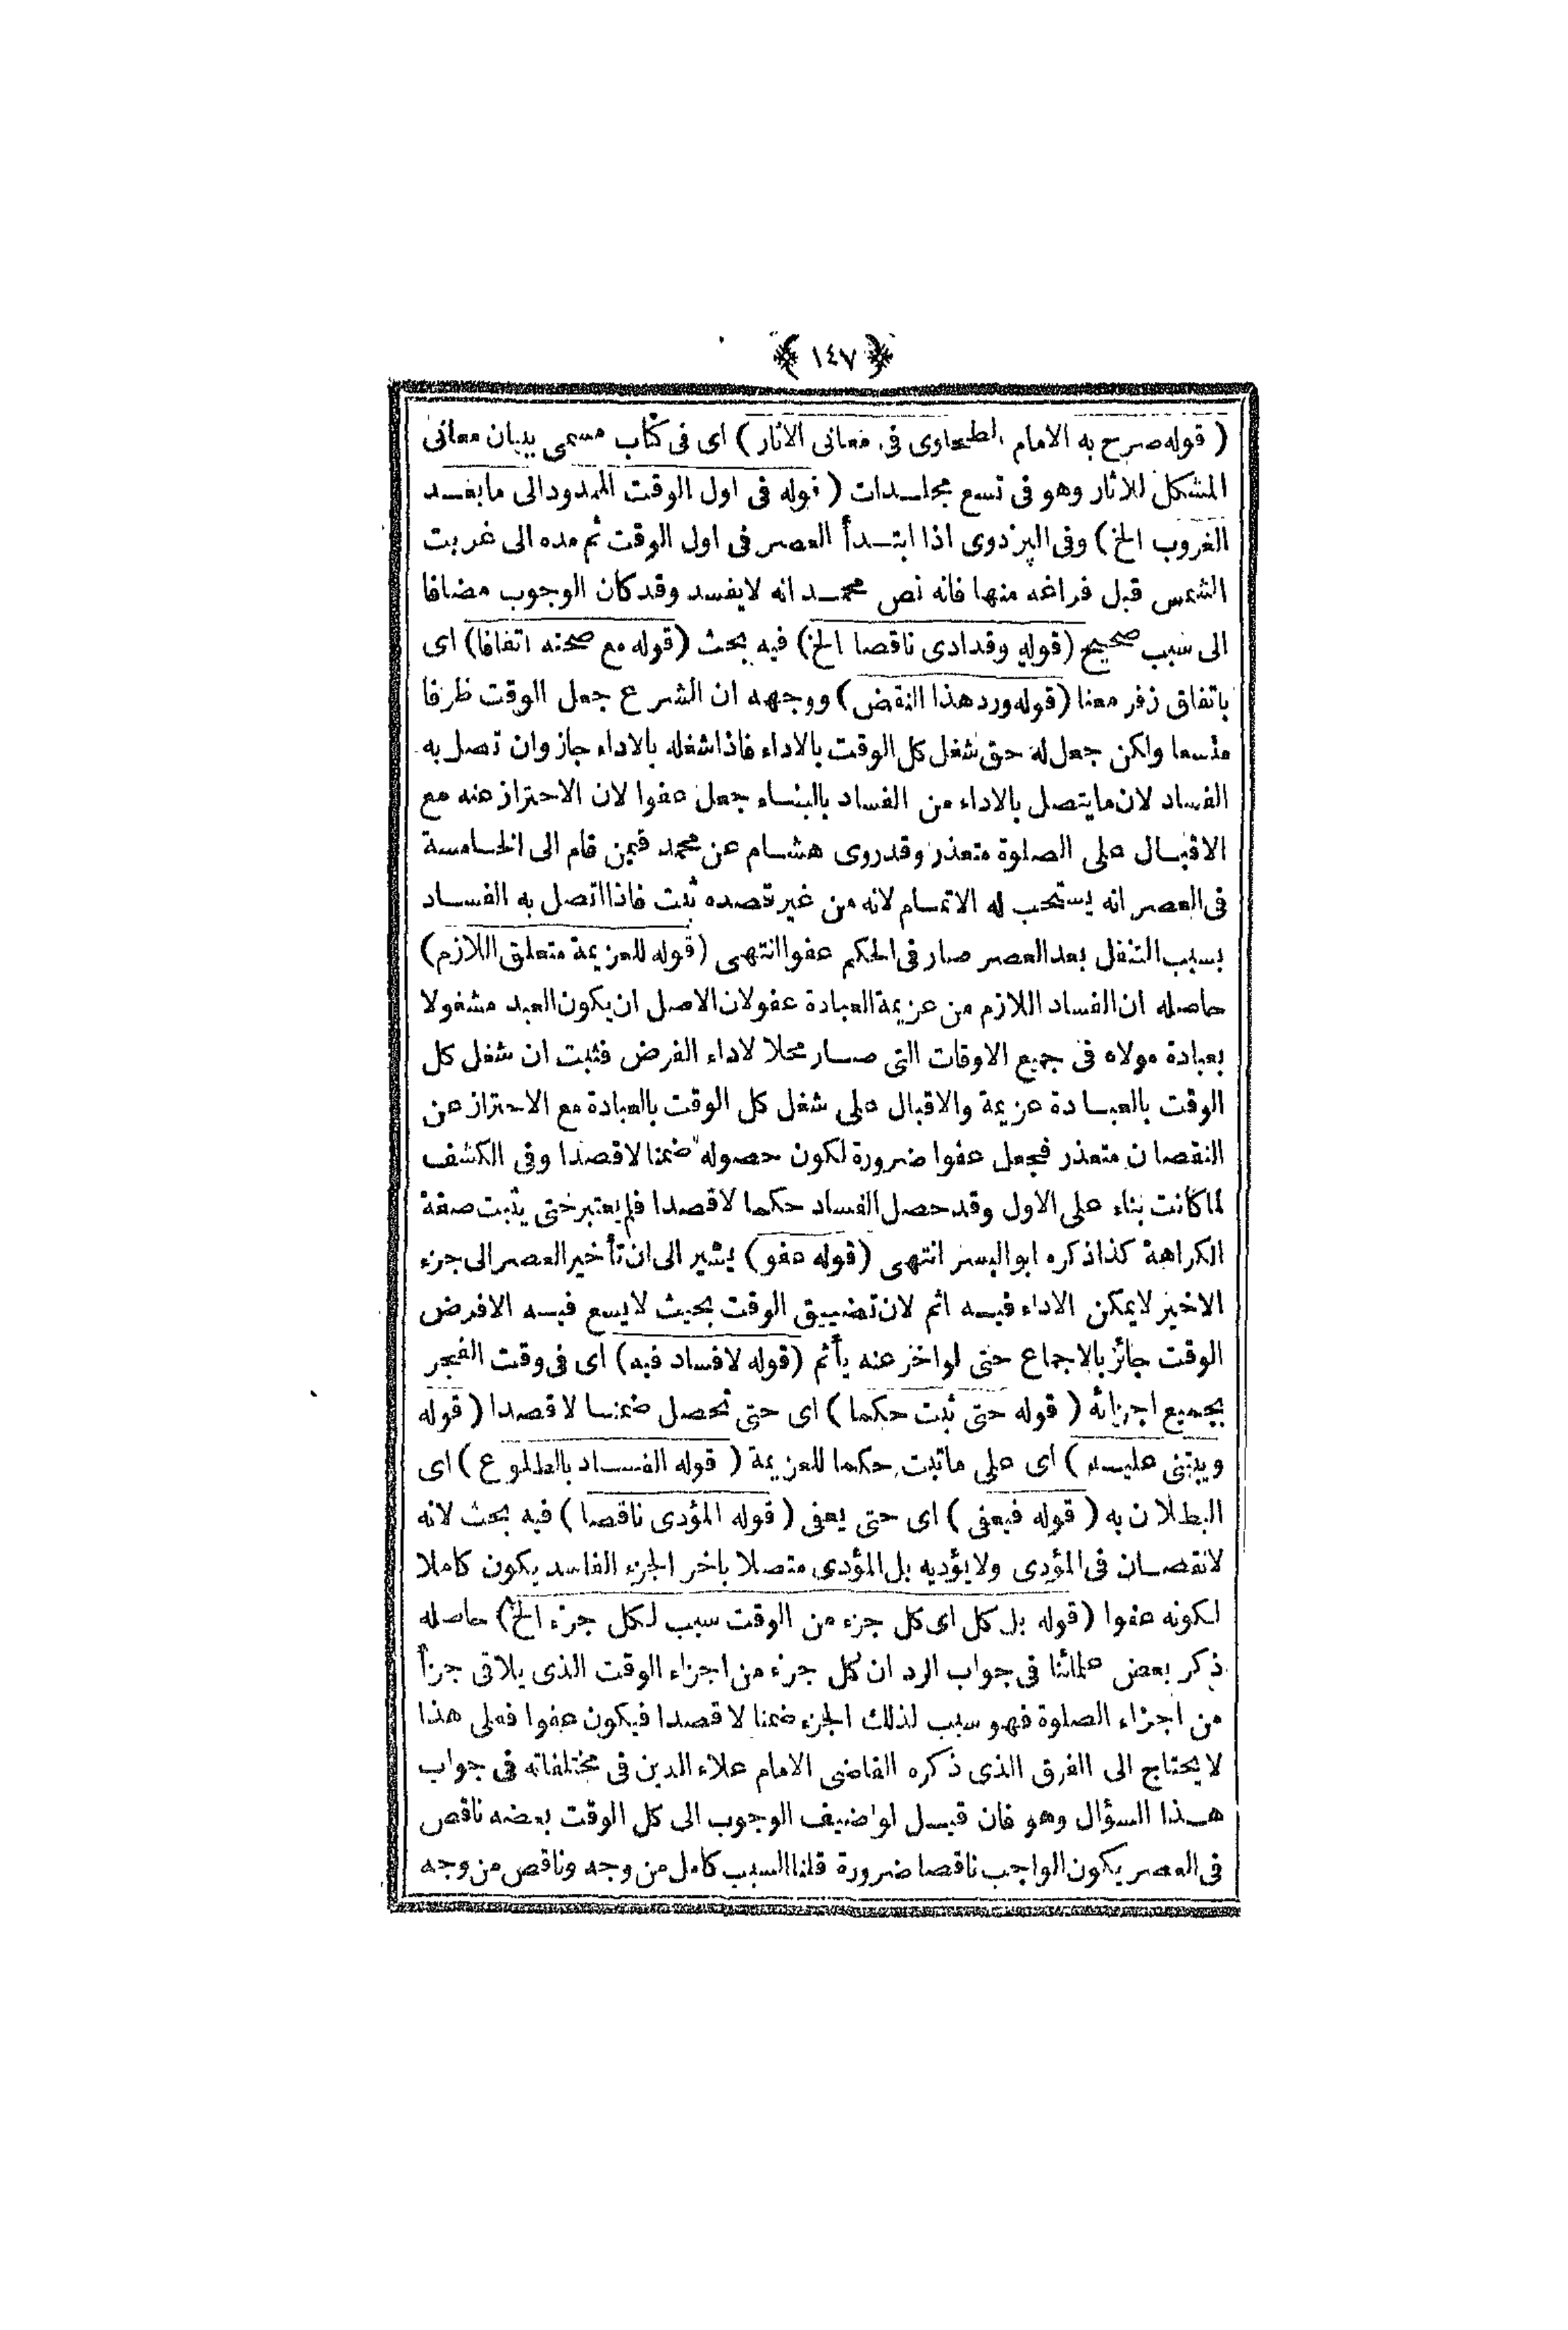 ﴿ ١٤٧ ﴾
( قوله صرح به الامام الطحاوى فى معانى الاثار ) اى فى كتاب مسمى ببيان معانى
المشكل للاثار وهو فى تسع مجلدات ( قوله فى اول الوقت الممدود الى ما يفسد
الغروب الخ ) وفى البزدوى اذا ابتدأ العصر فى اول الوقت ثم مده الى غربت
الشمس قبل فراغه منها فانه نص محمد انه لا يفسد وقد كان الوجوب مضافا
الى سبب صحيح ( قوله وقد ادى ناقصا الخ ) فيه بحث ( قوله مع صحته اتفاقا ) اى
باتفاق زفر معنا ( قوله ورد هذا النقض ) ووجهه ان الشرع جعل الوقت ظرفا
متسعا ولكن جعل له حق شغل كل الوقت بالاداء فاذا شغله بالاداء جاز وان تصل به
الفساد لان ما يتصل بالاداء من الفساد بالبناء جعل عفوا لان الاحتراز عنه مع
الاقبال على الصلوة متعذر وقد روى هشام عن محمد فيمن قام الى الخامسة
فى العصر انه يستحب له الاتمام لانه من غير قصده ثبت فاذا اتصل به الفساد
بسبب التنفل بعد العصر صار فى الحكم عفوا انتهى ( قوله للعزيمة متعلق اللازم )
حاصله ان الفساد اللازم من عزيمة العبادة عفو لان الاصل ان يكون العبد مشغولا
بعبادة مولاه فى جميع الاوقات التى صار محلا لاداء الفرض فثبت ان شغل كل
الوقت بالعبادة عزيمة والاقبال على شغل كل الوقت بالعبادة مع الاحتراز عن
النقصان متعذر فجعل عفوا ضرورة لكون حصوله ضمنا لا قصدا وفى الكشف
لما كانت بناء على الاول وقد حصل الفساد حكما لا قصدا فلم يعتبر حتى يثبت صفة
الكراهة كذا ذكره ابو اليسر انتهى ( قوله عفو ) يشير الى ان تأخير العصر الى جزء
الاخير لا يمكن الاداء فيه اثم لان تضييق الوقت بحيث لا يسع فيه الا فرض
الوقت جائز بالاجماع حتى لو اخر عنه يأثم ( قوله لا فساد فيه ) اى فى وقت الفجر
بجميع اجزائه ( قوله حتى ثبت حكما ) اى حتى تحصل ضمنا لا قصدا ( قوله
ويبتنى عليه ) اى على ما ثبت حكما للعزيمة ( قوله الفساد بالطلوع ) اى
البطلان به ( قوله فيعفى ) اى حتى يعفى ( قوله المؤدى ناقصا ) فيه بحث لانه
لا نقصان فى المؤدى ولا يؤديه بل المؤدى متصلا باخر الجزء الفاسد يكون كاملا
لكونه عفوا ( قوله بل كل اى كل جزء من الوقت سبب لكل جزء الخ ) حاصله
ذكر بعض علمائنا فى جواب الرد ان كل جزء من اجزاء الوقت الذى يلاقى جزأ
من اجزاء الصلوة فهو سبب لذلك الجزء ضمنا لا قصدا فيكون عفوا فعلى هذا
لا يحتاج الى الفرق الذى ذكره القاضى الامام علاء الدين فى مختلفاته فى جواب
هذا السؤال وهو فان قيل لو اضيف الوجوب الى كل الوقت بعضه ناقص
فى العصر يكون الواجب ناقصا ضرورة قلنا السبب كامل من وجه وناقص من وجه